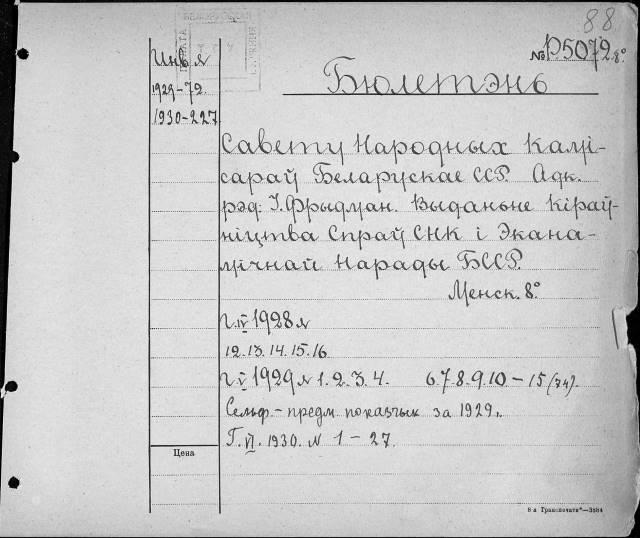 88
№ P5072 8°
Инв №
1929-72
1930-227
Бюлетэнь
Савету Народных Камі-
сараў Беларускае ССР. Адк.
рэд. І. Фрыдман. Выданьне Кіраў-
ніцтва Спраў СНК і Экана-
мічнай Нарады БССР.
Менск. 8°
г. IV 1928 №
12. 13. 14. 15. 16
г. V 1929 № 1. 2. 3. 4. 6. 7. 8. 9. 10 – 15 (74).
предм. показчык за 1929 г.
Г. VI. 1930. N 1 – 27.
Цена
8 а Транспечати"—3584